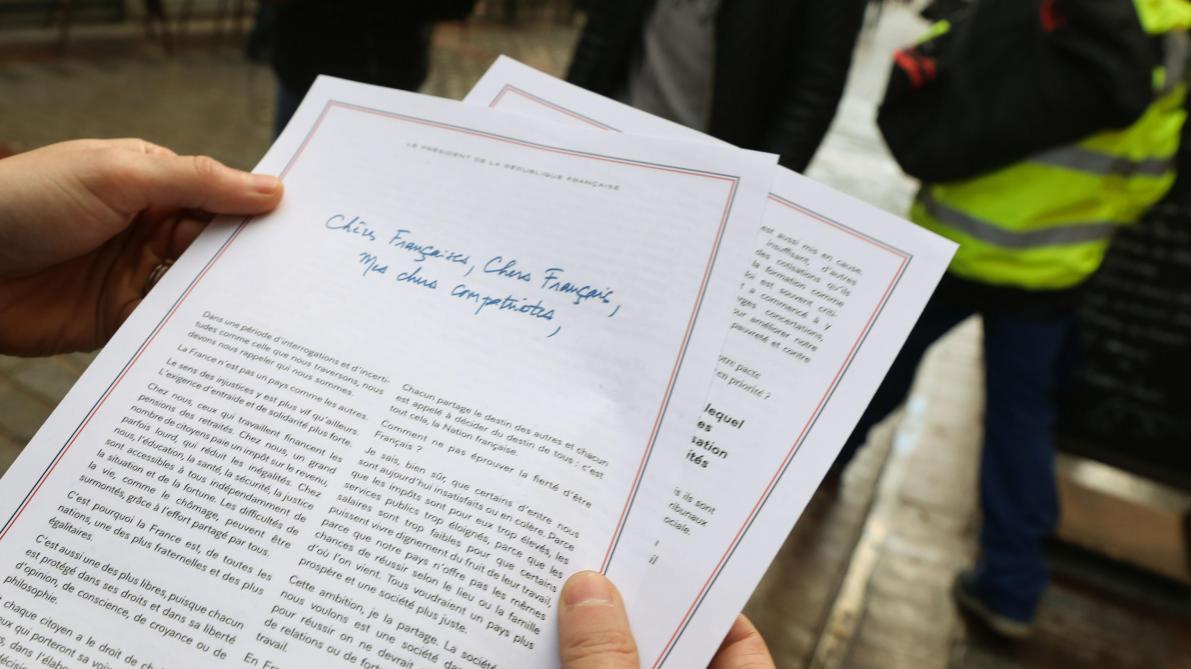 LE PRÉSIDENT DE LA RÉPUBLIQUE FRANÇAISE
Chères Françaises, Chers Français,
Mes chers compatriotes,
Dans une période d'interrogations et d'incerti-
tudes comme celle que nous traversons, nous
devons nous rappeler qui nous sommes.
La France n'est pas un pays comme les autres.
Le sens des injustices y est plus vif qu'ailleurs.
L'exigence d'entraide et de solidarité plus forte.
Chez nous, ceux qui travaillent financent les
pensions des retraités. Chez nous, un grand
nombre de citoyens paie un impôt sur le revenu,
parfois lourd, qui réduit les inégalités. Chez
nous, l'éducation, la santé, la sécurité, la justice
sont accessibles à tous indépendamment de
la situation et de la fortune. Les difficultés de
la vie, comme le chômage, peuvent être
surmontés, grâce à l'effort partagé par tous.
C'est pourquoi la France est, de toutes les
nations, une des plus fraternelles et des plus
égalitaires.
C'est aussi une des plus libres, puisque chacun
est protégé dans ses droits et dans sa liberté
d'opinion, de conscience, de croyance ou de
philosophie.
chaque citoyen a le droit de
qui porteront sa
dans
Chacun partage le destin des autres et chacun
est appelé à décider du destin de tous : c'est
tout cela, la Nation française.
Comment ne pas éprouver la fierté d'être
Français ?
Je sais, bien sûr, que certains d'entre nous
sont aujourd'hui insatisfaits ou en colère. Parce
que les impôts sont pour eux trop élevés, les
services publics trop éloignés, parce que les
salaires sont trop faibles pour que certains
puissent vivre dignement du fruit de leur travail,
parce que notre pays n'offre pas les mêmes
chances de réussir selon le lieu ou la famille
d'où l'on vient. Tous voudraient un pays plus
prospère et une société plus juste.
Cette ambition, je la partage. La société
nous voulons est une société
pour réussir on ne devrait
de relations ou de
travail.
En
est aussi mis en cause.
insuffisant, d'autres
des cotisations qu'ils
la formation comme
est souvent criti-
a commencé à y
concertations,
améliorer notre
pauvreté et contre
pacte
en priorité ?
lequel
ils sont